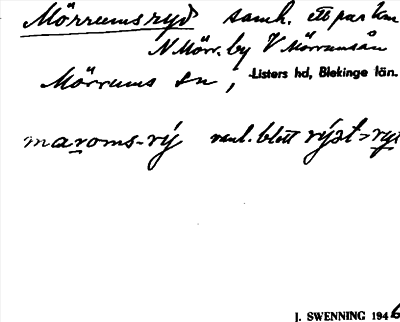 Mörrumsryd samh. ett par km
N Mörr. by V Mörrumsån
Mörrums sn, Listers hd, Blekinge län.
maroms-rý vanl. blott rýst > ryt
J. SWENNING 1946